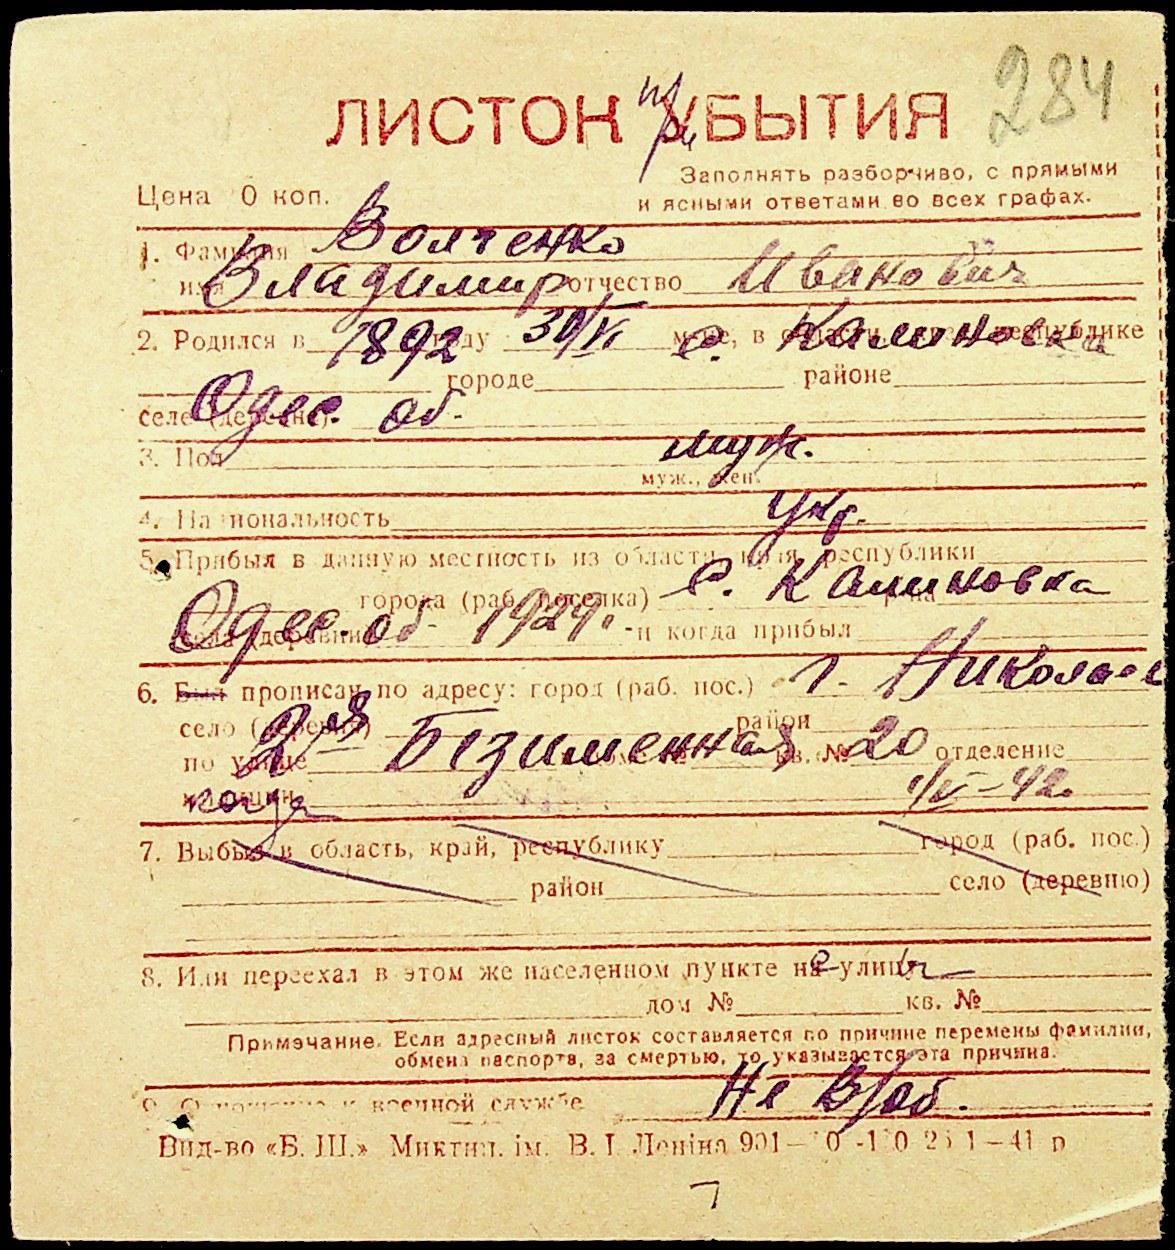 284
ЛИСТОК УБЫТИЯ
при
Заполнять разборчиво, с прямыми
и ясными ответами во всех графах.
Цена 0 коп.
1. Фамилия Волченко
имя Владимир отчество Иванович
2. Родился в 1892 году 30/VI м-це, в области, крае, республике с. Калиновка
городе районе
селе (деревне) Одес. об.
3. Пол муж.
муж., жен.
4. Национальность Укр.
5. Прибыл в данную местность из области, края, республики
города (раб. поселка) с. Калиновка
села (деревни) Одес. об. 1924г. и когда прибыл
6. Был прописан по адресу: город (раб. пос.) г. Николаев
село (деревня) район
по улице 2ая Безименная кв. № 20 отделение
милиции когда 1/IV-42.
7. Выбыл в область, край, республику город (раб. пос.)
район село (деревню)
8. Или переехал в этом же населенном пункте на улицу
дом № кв. №
Примэчание. Если адресный листок составляется по причине перемены фамилии,
обмена паспорта, за смертью, то указывается эта причина.
9. Отношение к военной службе Не в/об.
Вид-во «Б. Ш.» Микт ім. В. І. Леніна 901